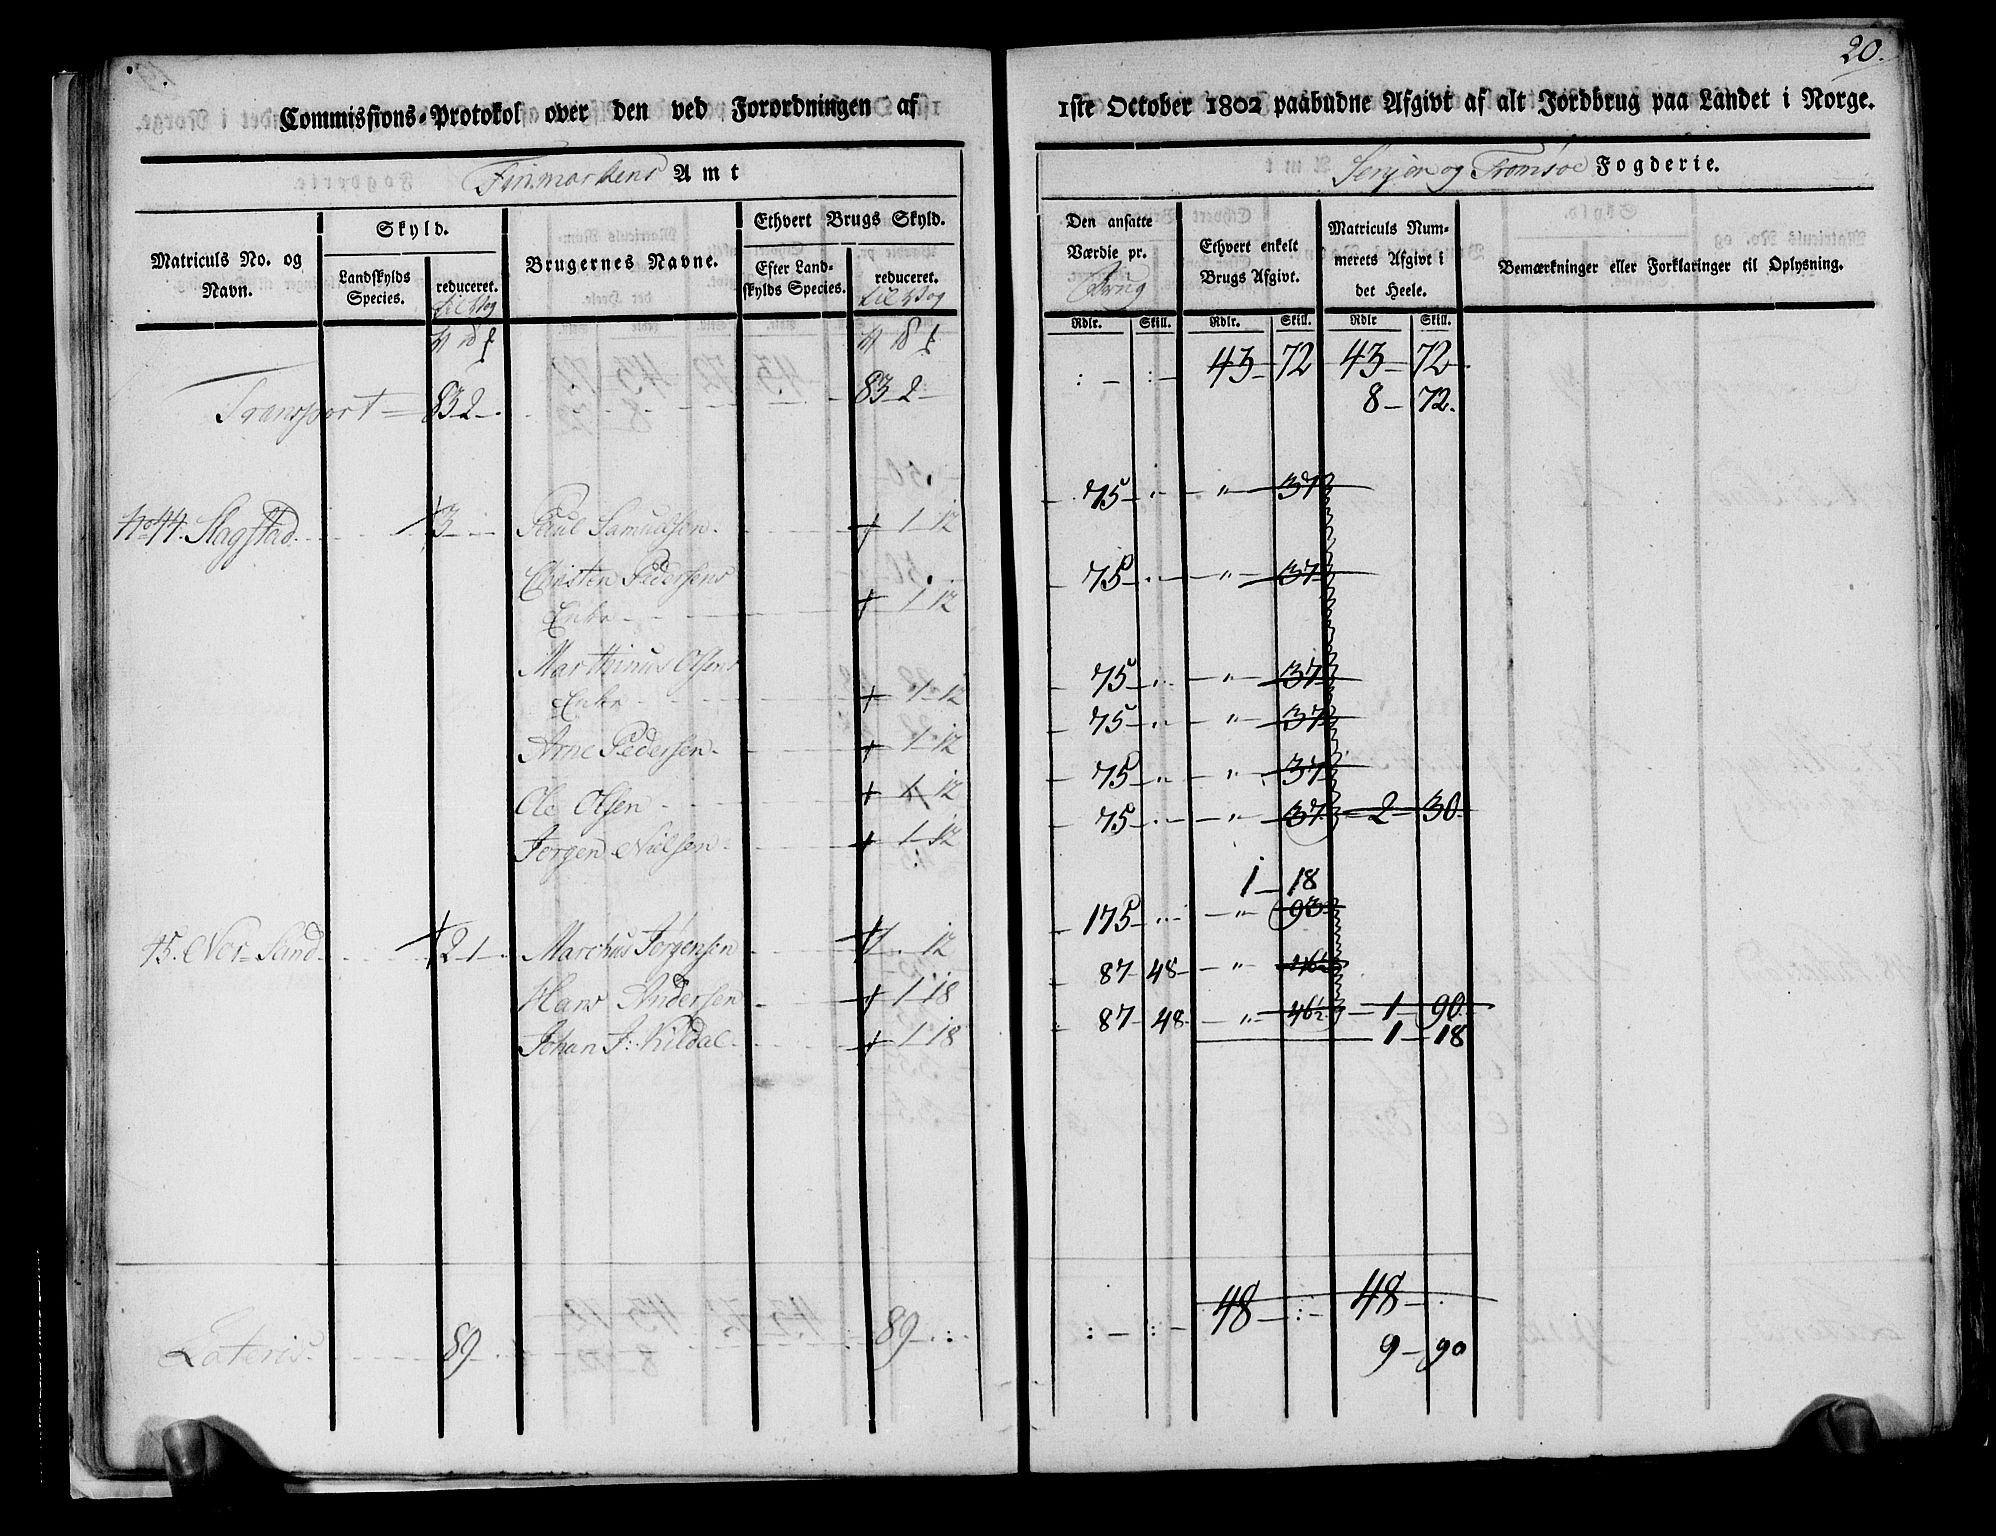 20.
Commissions-Protokol over den ved Forordningen af 1ste October 1802 paabudne Afgivt af alt Jordbrug paa Landet i Norge.
Finmarkens Amt
Senjen og Tromsøe Fogderie.
Matriculs No. og Navn.
Skyld.
Landskylds Species.
reduceret.
Brugernes Navne.
Ethvert Brugs Skyld.
Efter Landskylds Species.
reduceret.
Den ansatte Værdie pr. Brug
Ethvert enkelt Brugs Afgivt.
Matriculs Nummerets Afgivt i det Heele.
Bemærkninger eller Forklaringer til Oplysning.
Rdlr. Skill. Rdlr. Skill. Rdlr Skill.
43 - 72 43 - 72
Transport 83 2 83 2 8 - 72.
No 44. Slagstad 3 Paul Samuelsen 1 12 75 " 37
Christen Pedersens
Enke 1 12 75 " 37
Marthinus Olsens
Enke 1 12 75 " 37
Arne Pedersen 1 12 75 " 37
Ole Olsen 1 12 75 " 37
Jørgen Nielsen 1 12 75 " 37 2 30
1 - 18
45. Nor-Sand 2 1 Marchus Jørgensen 12 175 " 93
Hans Andersen 1 18 87 48 " 46½
Johan J: Kildal 1 18 87 48 " 46½ 1 90
1 18
Lateris 89 89 48 48
9 - 90